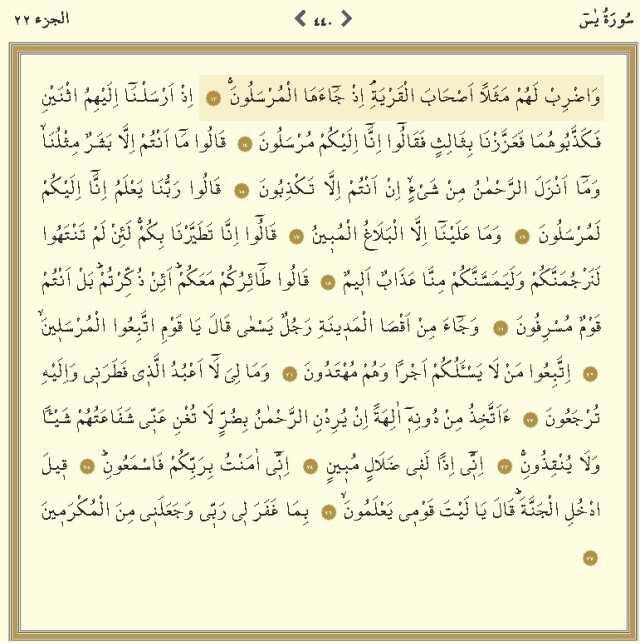 سُورَةُ يٰسٓ ٤٤٠ الجزء ٢٢
وَاضْرِبْ لَهُمْ مَثَلاً اَصْحَابَ الْقَرْيَةِۘ اِذْ جَٓاءَهَا الْمُرْسَلُونَۚ ١٣ اِذْ اَرْسَلْنَٓا اِلَيْهِمُ اثْنَيْنِ
فَكَذَّبُوهُمَا فَعَزَّزْنَا بِثَالِثٍ فَقَالُٓوا اِنَّٓا اِلَيْكُمْ مُرْسَلُونَ ١٤ قَالُوا مَٓا اَنْتُمْ اِلَّا بَشَرٌ مِثْلُنَاۙ
وَمَٓا اَنْزَلَ الرَّحْمٰنُ مِنْ شَیْءٍۙ اِنْ اَنْتُمْ اِلَّا تَكْذِبُونَ ١٥ قَالُوا رَبُّنَا يَعْلَمُ اِنَّٓا اِلَيْكُمْ
لَمُرْسَلُونَ ١٦ وَمَا عَلَيْنَٓا اِلَّا الْبَلَاغُ الْمُب۪ينُ ١٧ قَالُٓوا اِنَّا تَطَيَّرْنَا بِكُمْۚ لَئِنْ لَمْ تَنْتَهُوا
لَنَرْجُمَنَّكُمْ وَلَيَمَسَّنَّكُمْ مِنَّا عَذَابٌ اَل۪يمٌ ١٨ قَالُوا طَٓائِرُكُمْ مَعَكُمْۜ اَئِنْ ذُكِّرْتُمْۜ بَلْ اَنْتُمْ
قَوْمٌ مُسْرِفُونَ ١٩ وَجَٓاءَ مِنْ اَقْصَا الْمَد۪ينَةِ رَجُلٌ يَسْعٰى قَالَ يَا قَوْمِ اتَّبِعُوا الْمُرْسَل۪ينَۙ
٢٠ اِتَّبِعُوا مَنْ لَا يَسْـَٔلُكُمْ اَجْرًا وَهُمْ مُهْتَدُونَ ٢١ وَمَا لِيَ لَٓا اَعْبُدُ الَّذ۪ی فَطَرَن۪ی وَاِلَيْهِ
تُرْجَعُونَ ٢٢ ءَاَتَّخِذُ مِنْ دُونِه۪ٓ اٰلِهَةً اِنْ يُرِدْنِ الرَّحْمٰنُ بِضُرٍّ لَا تُغْنِ عَنّ۪ی شَفَاعَتُهُمْ شَيْـًٔا
وَلَا يُنْقِذُونِۚ ٢٣ اِنّ۪ٓی اِذًا لَف۪ی ضَلَالٍ مُب۪ينٍ ٢٤ اِنّ۪ٓی اٰمَنْتُ بِرَبِّكُمْ فَاسْمَعُونِۜ ٢٥ ق۪يلَ
ادْخُلِ الْجَنَّةَۜ قَالَ يَا لَيْتَ قَوْم۪ی يَعْلَمُونَۙ ٢٦ بِمَا غَفَرَ ل۪ی رَبّ۪ی وَجَعَلَن۪ی مِنَ الْمُكْرَم۪ينَ
٢٧